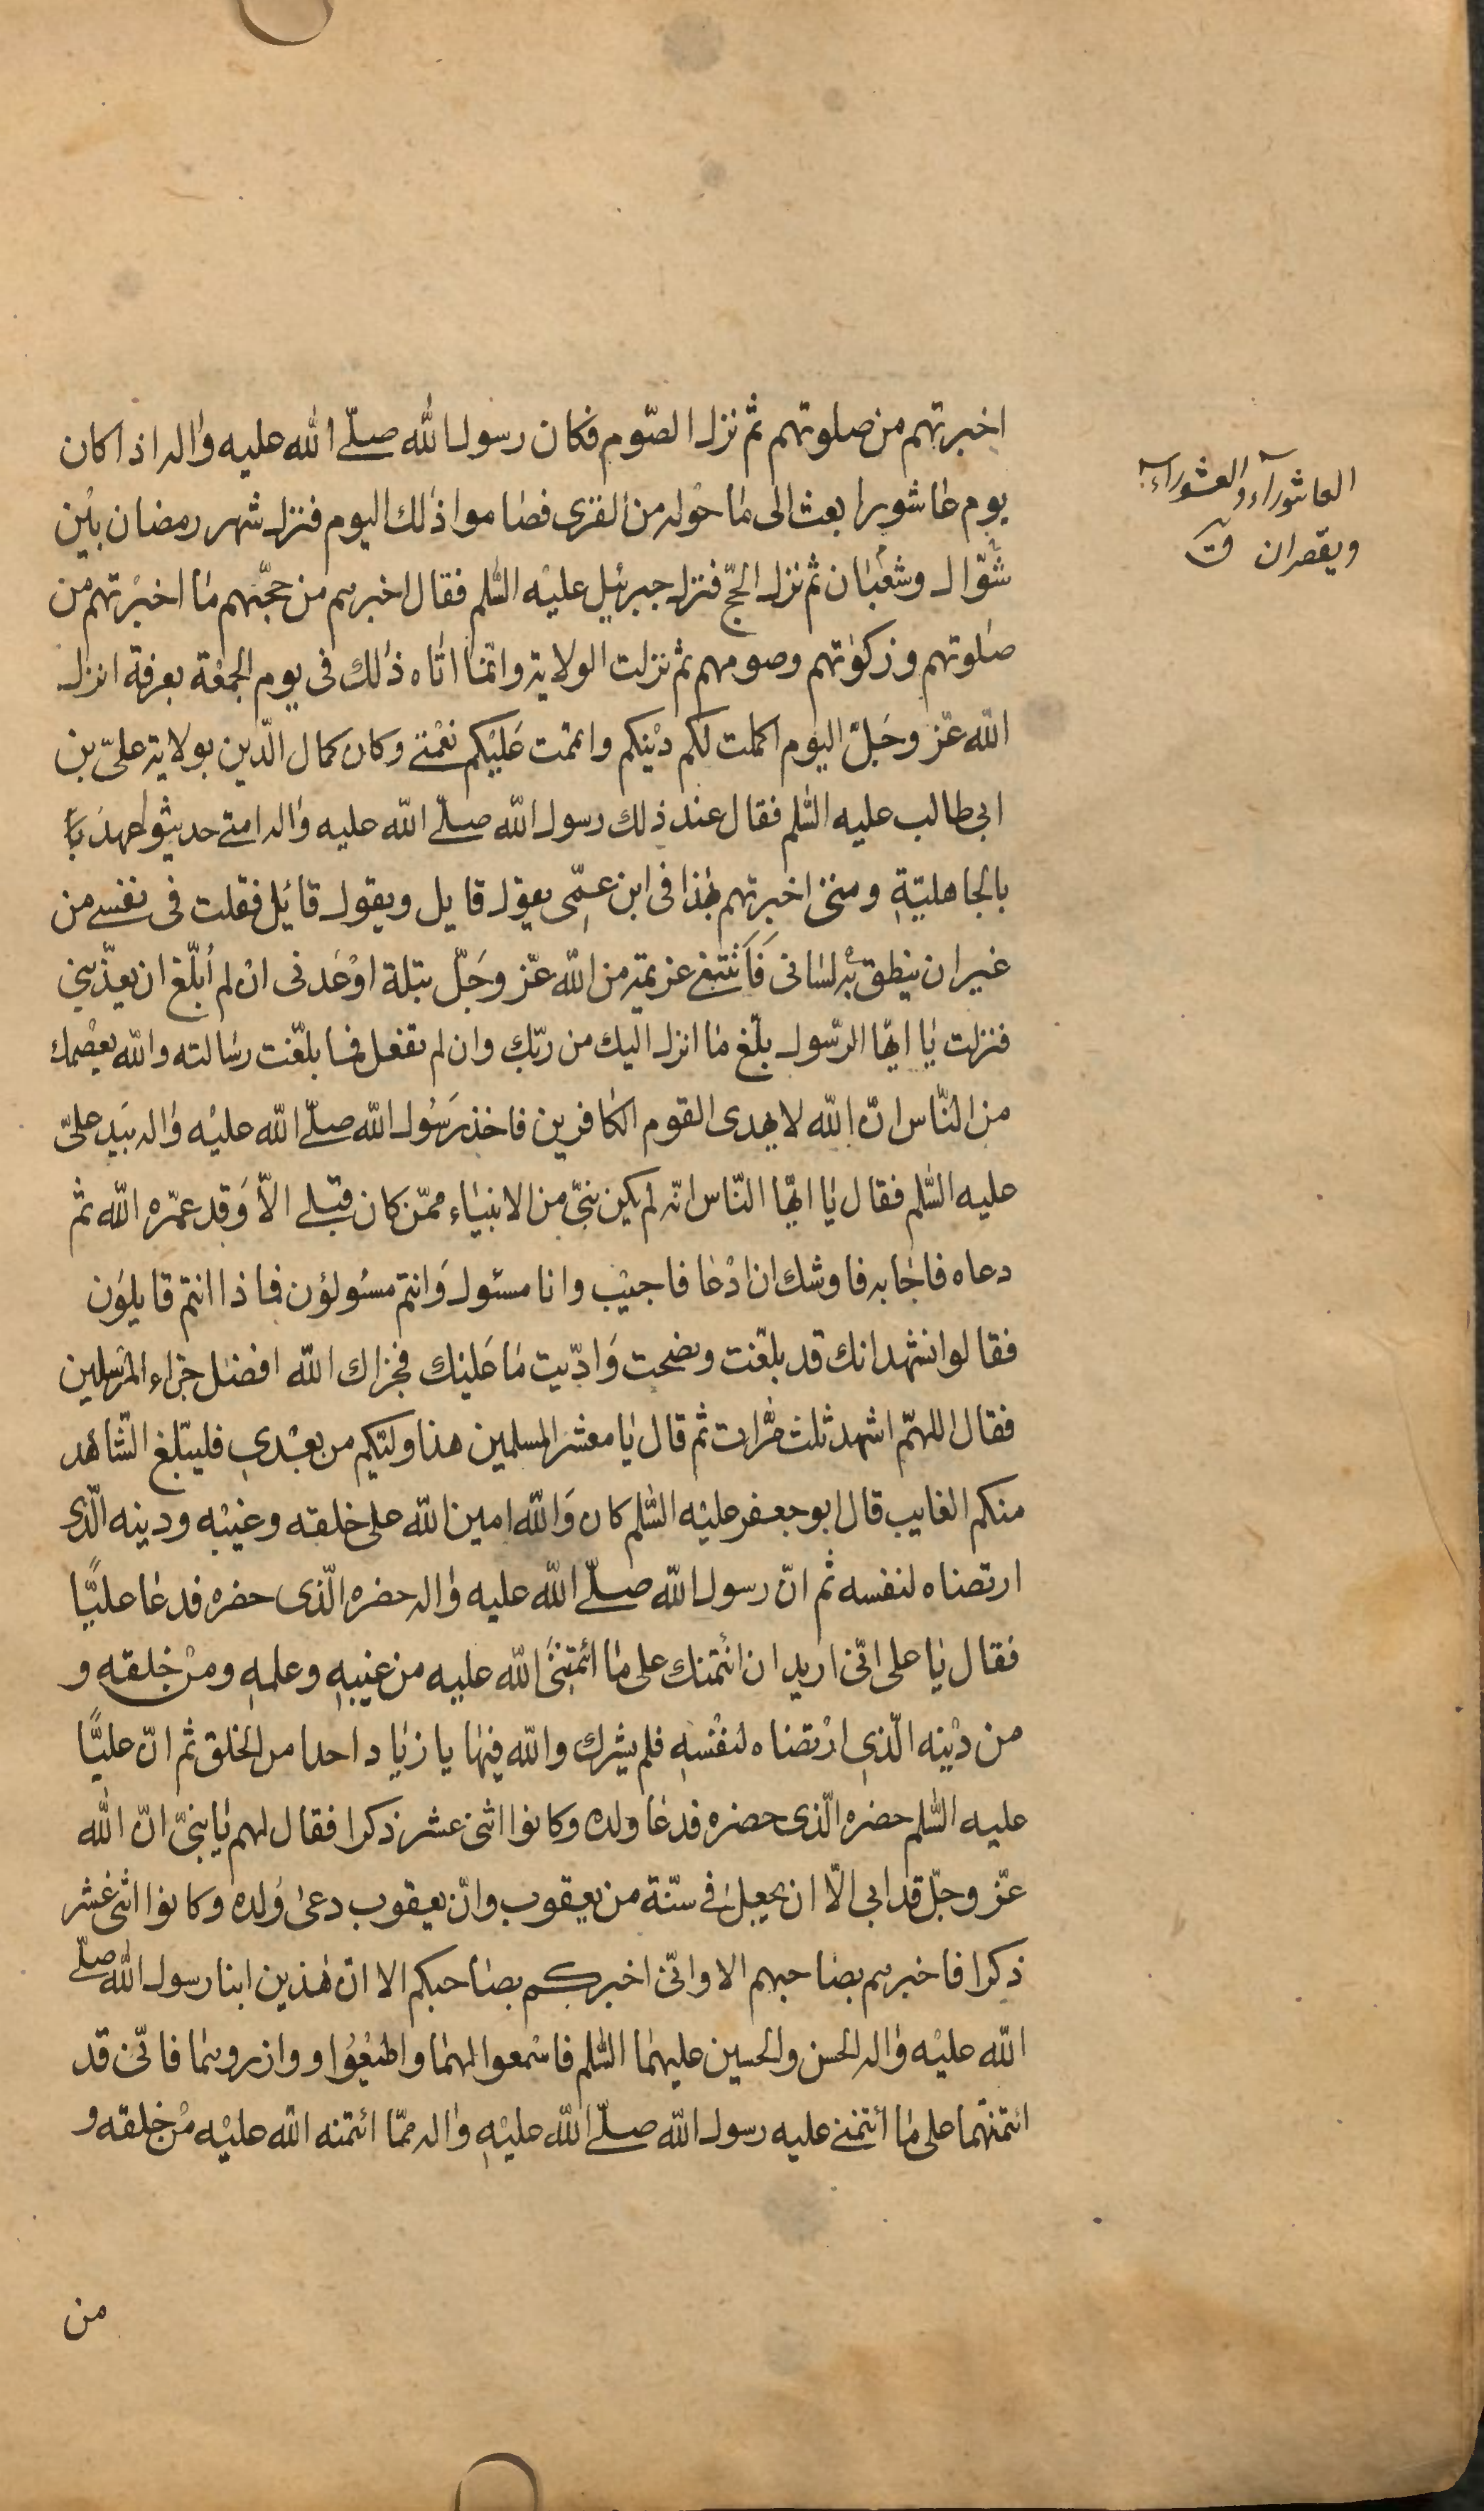 اخبرتهم من صلوتهم ثم نزل الصّوم فكان رسول الله صلّى الله عليه واله اذا كان
العاشورآء والعشورآء
ويقصران ق
يوم عاشورا بعث الى ما حوله من القرى فصاموا ذلك اليوم فنزل شهر رمضان بين
شوّال وشعبان ثم نزل الحجّ فنزل جبرئيل عليه السّلم فقال اخبرهم من حجّهم ما اخبرتهم من
صلوتهم وزكوتهم وصومهم ثم نزلت الولاية وانّما اتاه ذلك فى يوم الجمعة بعرفة انزل
الله عزّ وجلّ اليوم اكملت لكم دينكم واتممت عليكم نعمتى وكان كمال الدّين بولاية علىّ بن
ابى طالب عليه السّلم فقال عند ذلك رسول الله صلّى الله عليه واله امتى حديثوا عهد
بالجاهليّة ومتى اخبرتهم بهذا فى ابن عمّى يقول قايل ويقول قائل فقلت فى نفسى من
غير ان ينطق به لسانى فاتتنى عزيمة من الله عزّ وجلّ بتلة اوعدنى ان لم أبلّغ ان يعذّبنى
فنزلت يا ايّها الرّسول بلّغ ما انزل اليك من ربّك وان لم تفعل فما بلّغت رسالته والله يعصمك
من النّاس انّ الله لا يهدى القوم الكافرين فاخذ رسول الله صلّى الله عليه واله بيد علىّ
عليه السّلم فقال يا ايّها النّاس انّه لم يكن نبىّ من الانبياء ممّن كان قبلى الاّ وقد عمّره الله ثم
دعاه فاجابه فاوشك ان ادعا فاجيب وانا مسئول وانتم مسئولؤن فماذا انتم قايلون
فقالوا نشهد انك قد بلّغت ونصحت وادّيت ما عليك فجزاك الله افضل جزاء المرسلين
فقال اللهمّ اشهد ثلث مرّات ثم قال يا معشر المسلمين هذا وليّكم من بعدى فليبلّغ الشّاهد
منكم الغايب قال ابو جعفر عليه السّلم كان والله امين الله على خلقه وغيبه ودينه الّذى
ارتضاه لنفسه ثم انّ رسول الله صلّى الله عليه واله حضره الّذى حضره فدعا عليًّا
فقال يا على انّى اريد ان ائتمنك على ما ائتمننى الله عليه من غيبه وعلمه ومن خلقه و
من دينه الّذى ارتضاه لنفسه فلم يشرك والله فيها يا زياد احدا من الخلق ثم انّ عليًّا
عليه السّلم حضره الّذى حضره فدعا ولده وكانوا اثنى عشر ذكرا فقال لهم يا بنىّ انّ الله
عزّ وجلّ قد ابى الّا ان يجعل فىّ سنّة من يعقوب وانّ يعقوب دعى ولده وكانوا اثنى عشر
ذكرا فاخبرهم بصاحبهم الا وانّى اخبركم بصاحبكم الا انّ هذين ابنا رسول الله صلّى
الله عليه واله الحسن والحسين عليهما السّلم فاسمعوا لهما واطيعوا ووازروهما فانّى قد
ائتمنتهما على ما ائتمننى عليه رسول الله صلّى الله عليه واله ممّا ائتمنه الله عليه من خلقه و
من